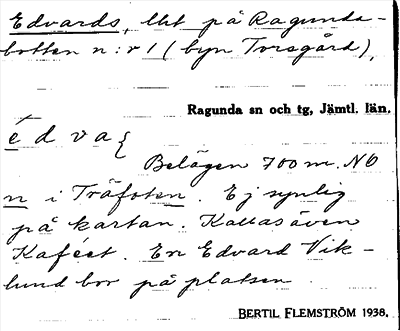 Edvards, lht på Ragunda-
botten n:r 1 (byn Torsgård),
Ragunda sn och tg, Jämtl. län.
é d v a{
Belägen 700 m. NO
n i Träfoten. Ej synlig
på kartan. Kallas även
Kaféet. En Edvard Vik-
lund bor på platsen.
BERTIL FLEMSTRÖM 1938.